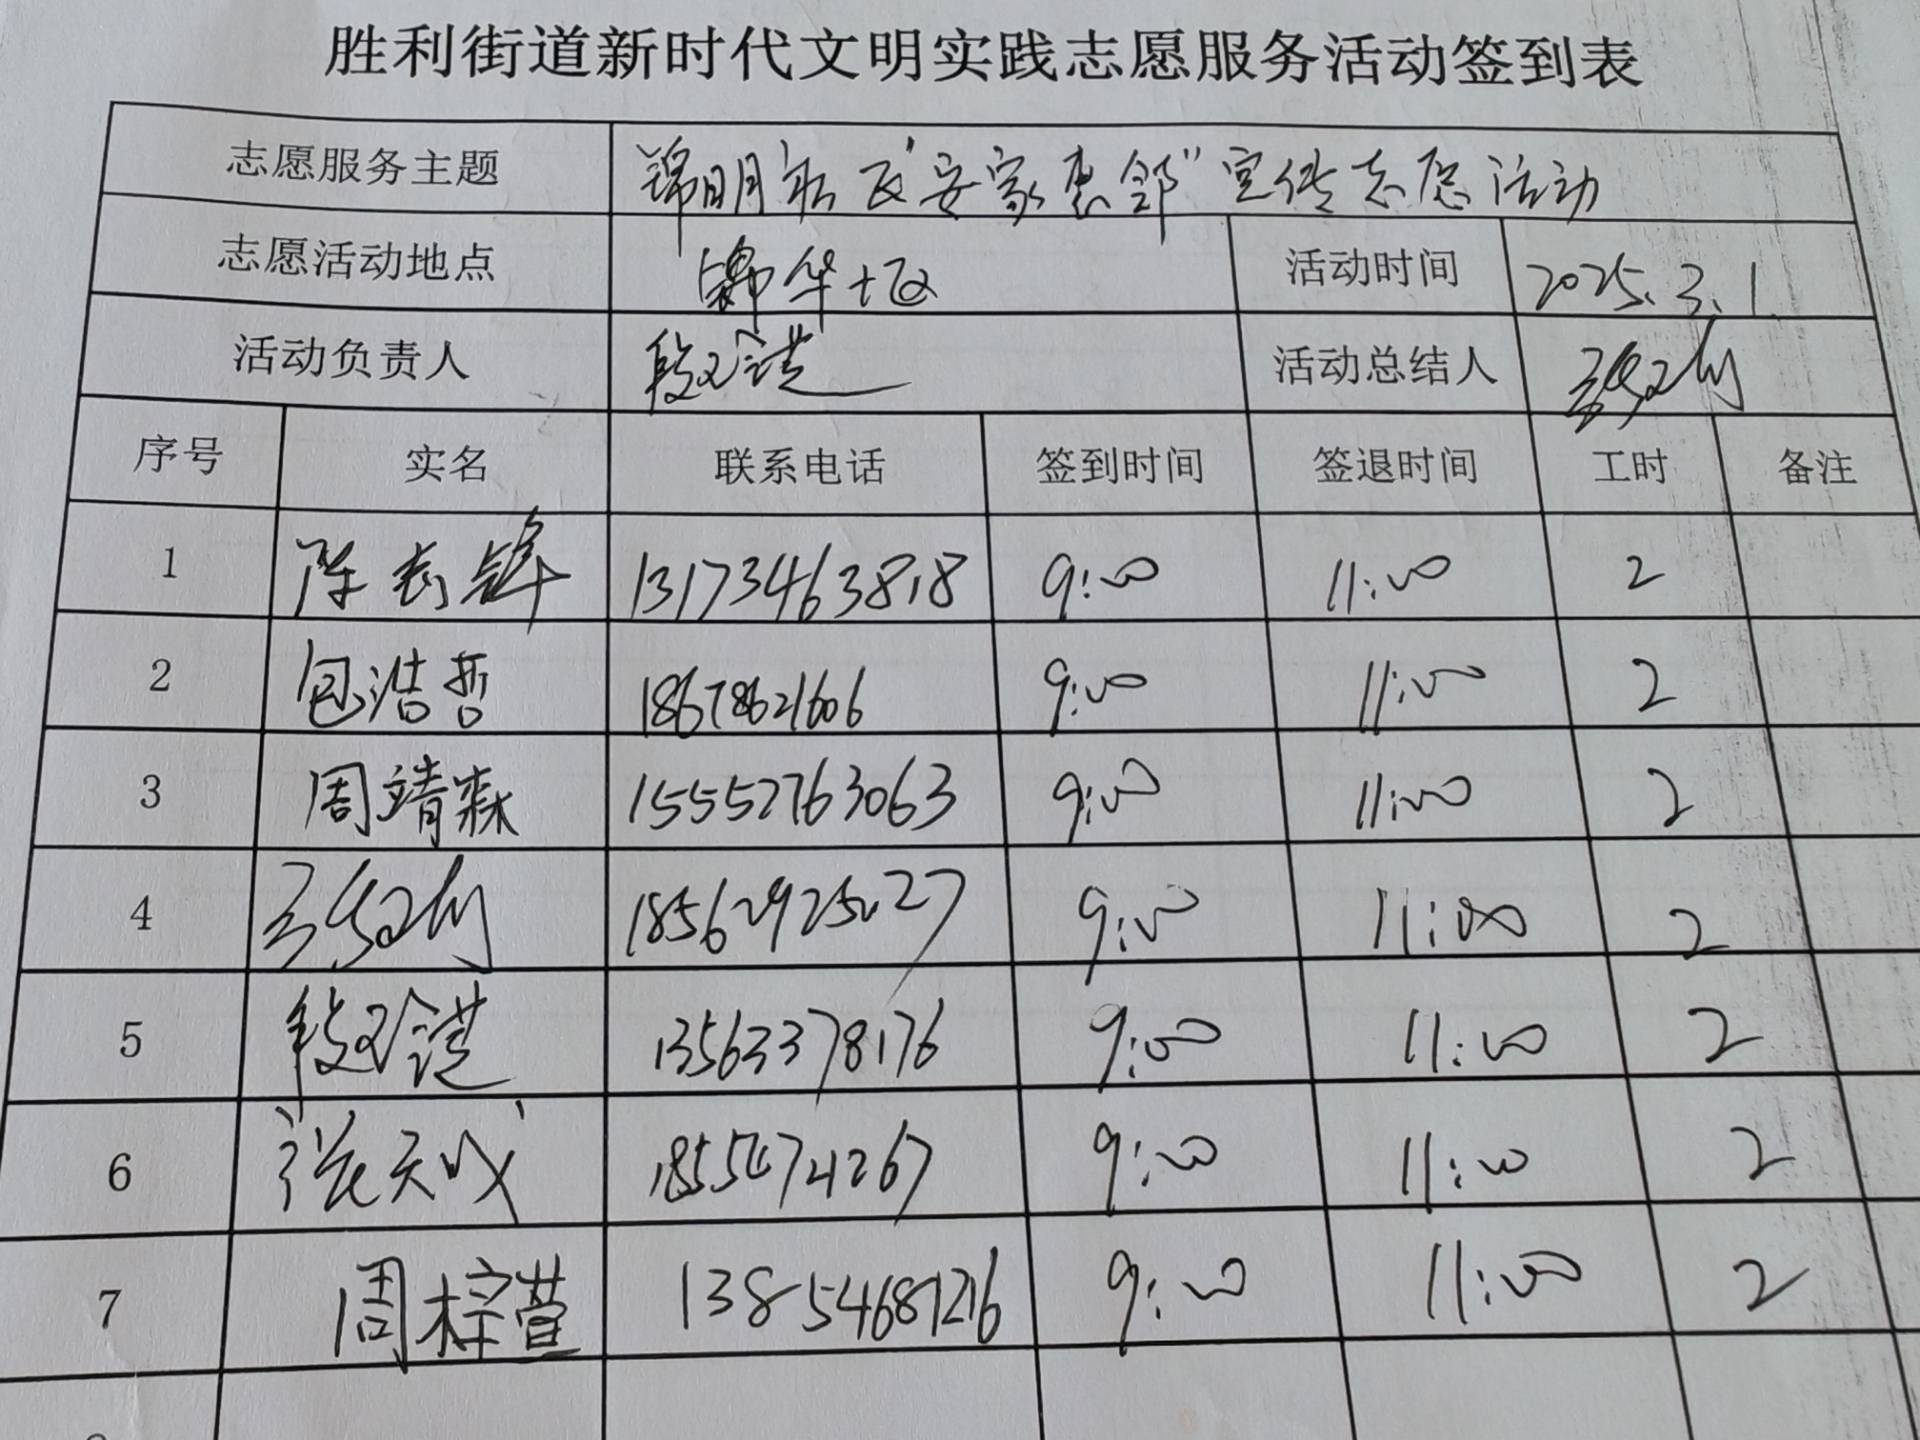 胜利街道新时代文明实践志愿服务活动签到表
志愿服务主题 锦明社区"安家惠邻"宣传志愿活动
志愿活动地点 锦华十区 活动时间 2025.3.1
活动负责人 活动总结人
序号 实名 联系电话 签到时间 签退时间 工时 备注
1 陈志锋 13173463818 9:00 11:00 2
2 包浩哲 18678621606 9:00 11:00 2
3 周靖森 15552763063 9:00 11:00 2
4 18562925227 9:00 11:00 2
5 13563378176 9:00 11:00 2
6 张天成 9:00 11:00 2
7 周梓萱 13854687216 9:00 11:00 2